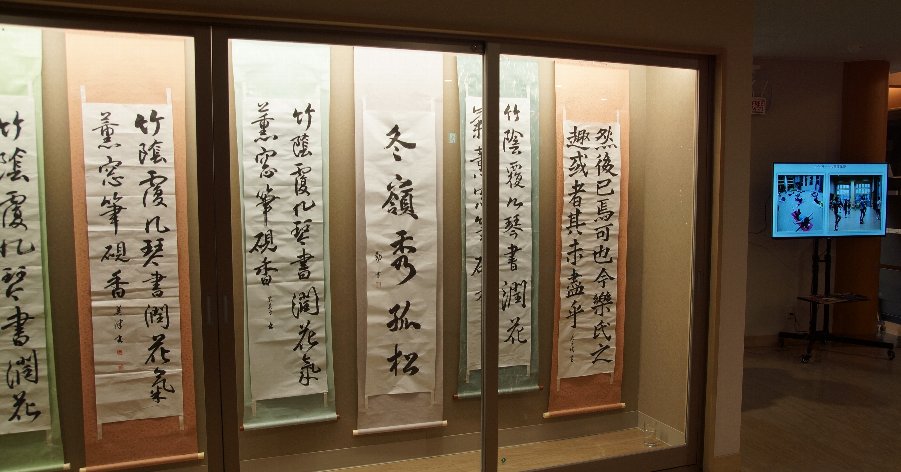 然後已焉可也今樂氏之
趣或者其未盡乎
竹陰覆几琴書潤花
氣薫窓筆硯
冬嶺秀孤松
竹陰覆几琴書潤花氣
薫窓筆硯香
竹陰覆几琴書潤花氣
薫窓筆硯香
竹陰覆几琴書潤花